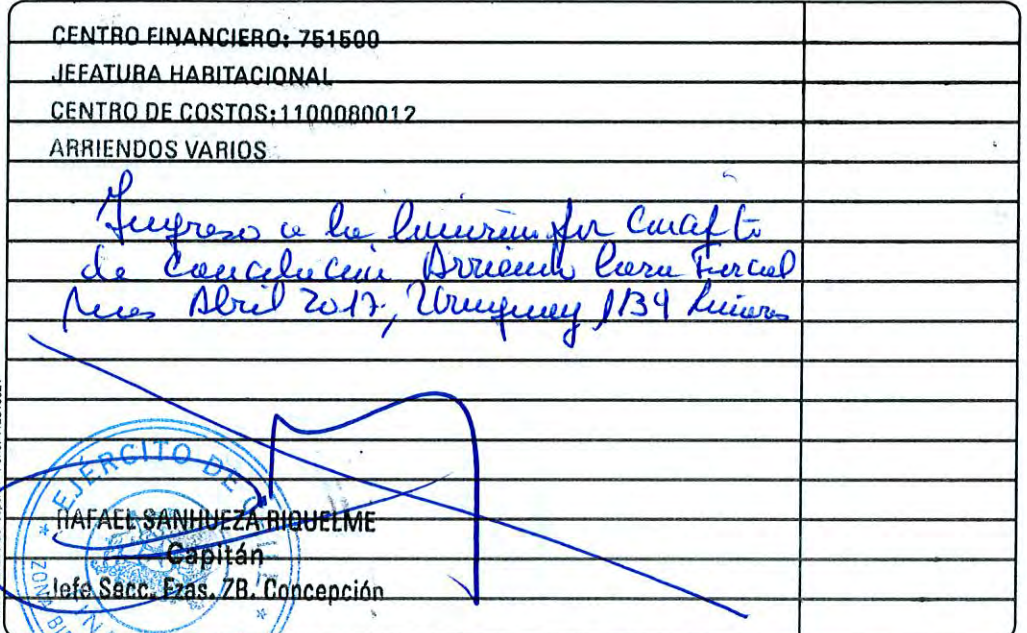 CENTRO FINANCIERO: 751500
JEFATURA HABITACIONAL
CENTRO DE COSTOS:1100080012
ARRIENDOS VARIOS
Ingreso a la
de Arriendo Fiscal
mes Abril 2017, Uruguay 1134 Linares
EJÉRCITO DE
RAFAEL SANHUEZA RIQUELME
Capitán
Jefe Secc. Fzas. ZB. Concepción